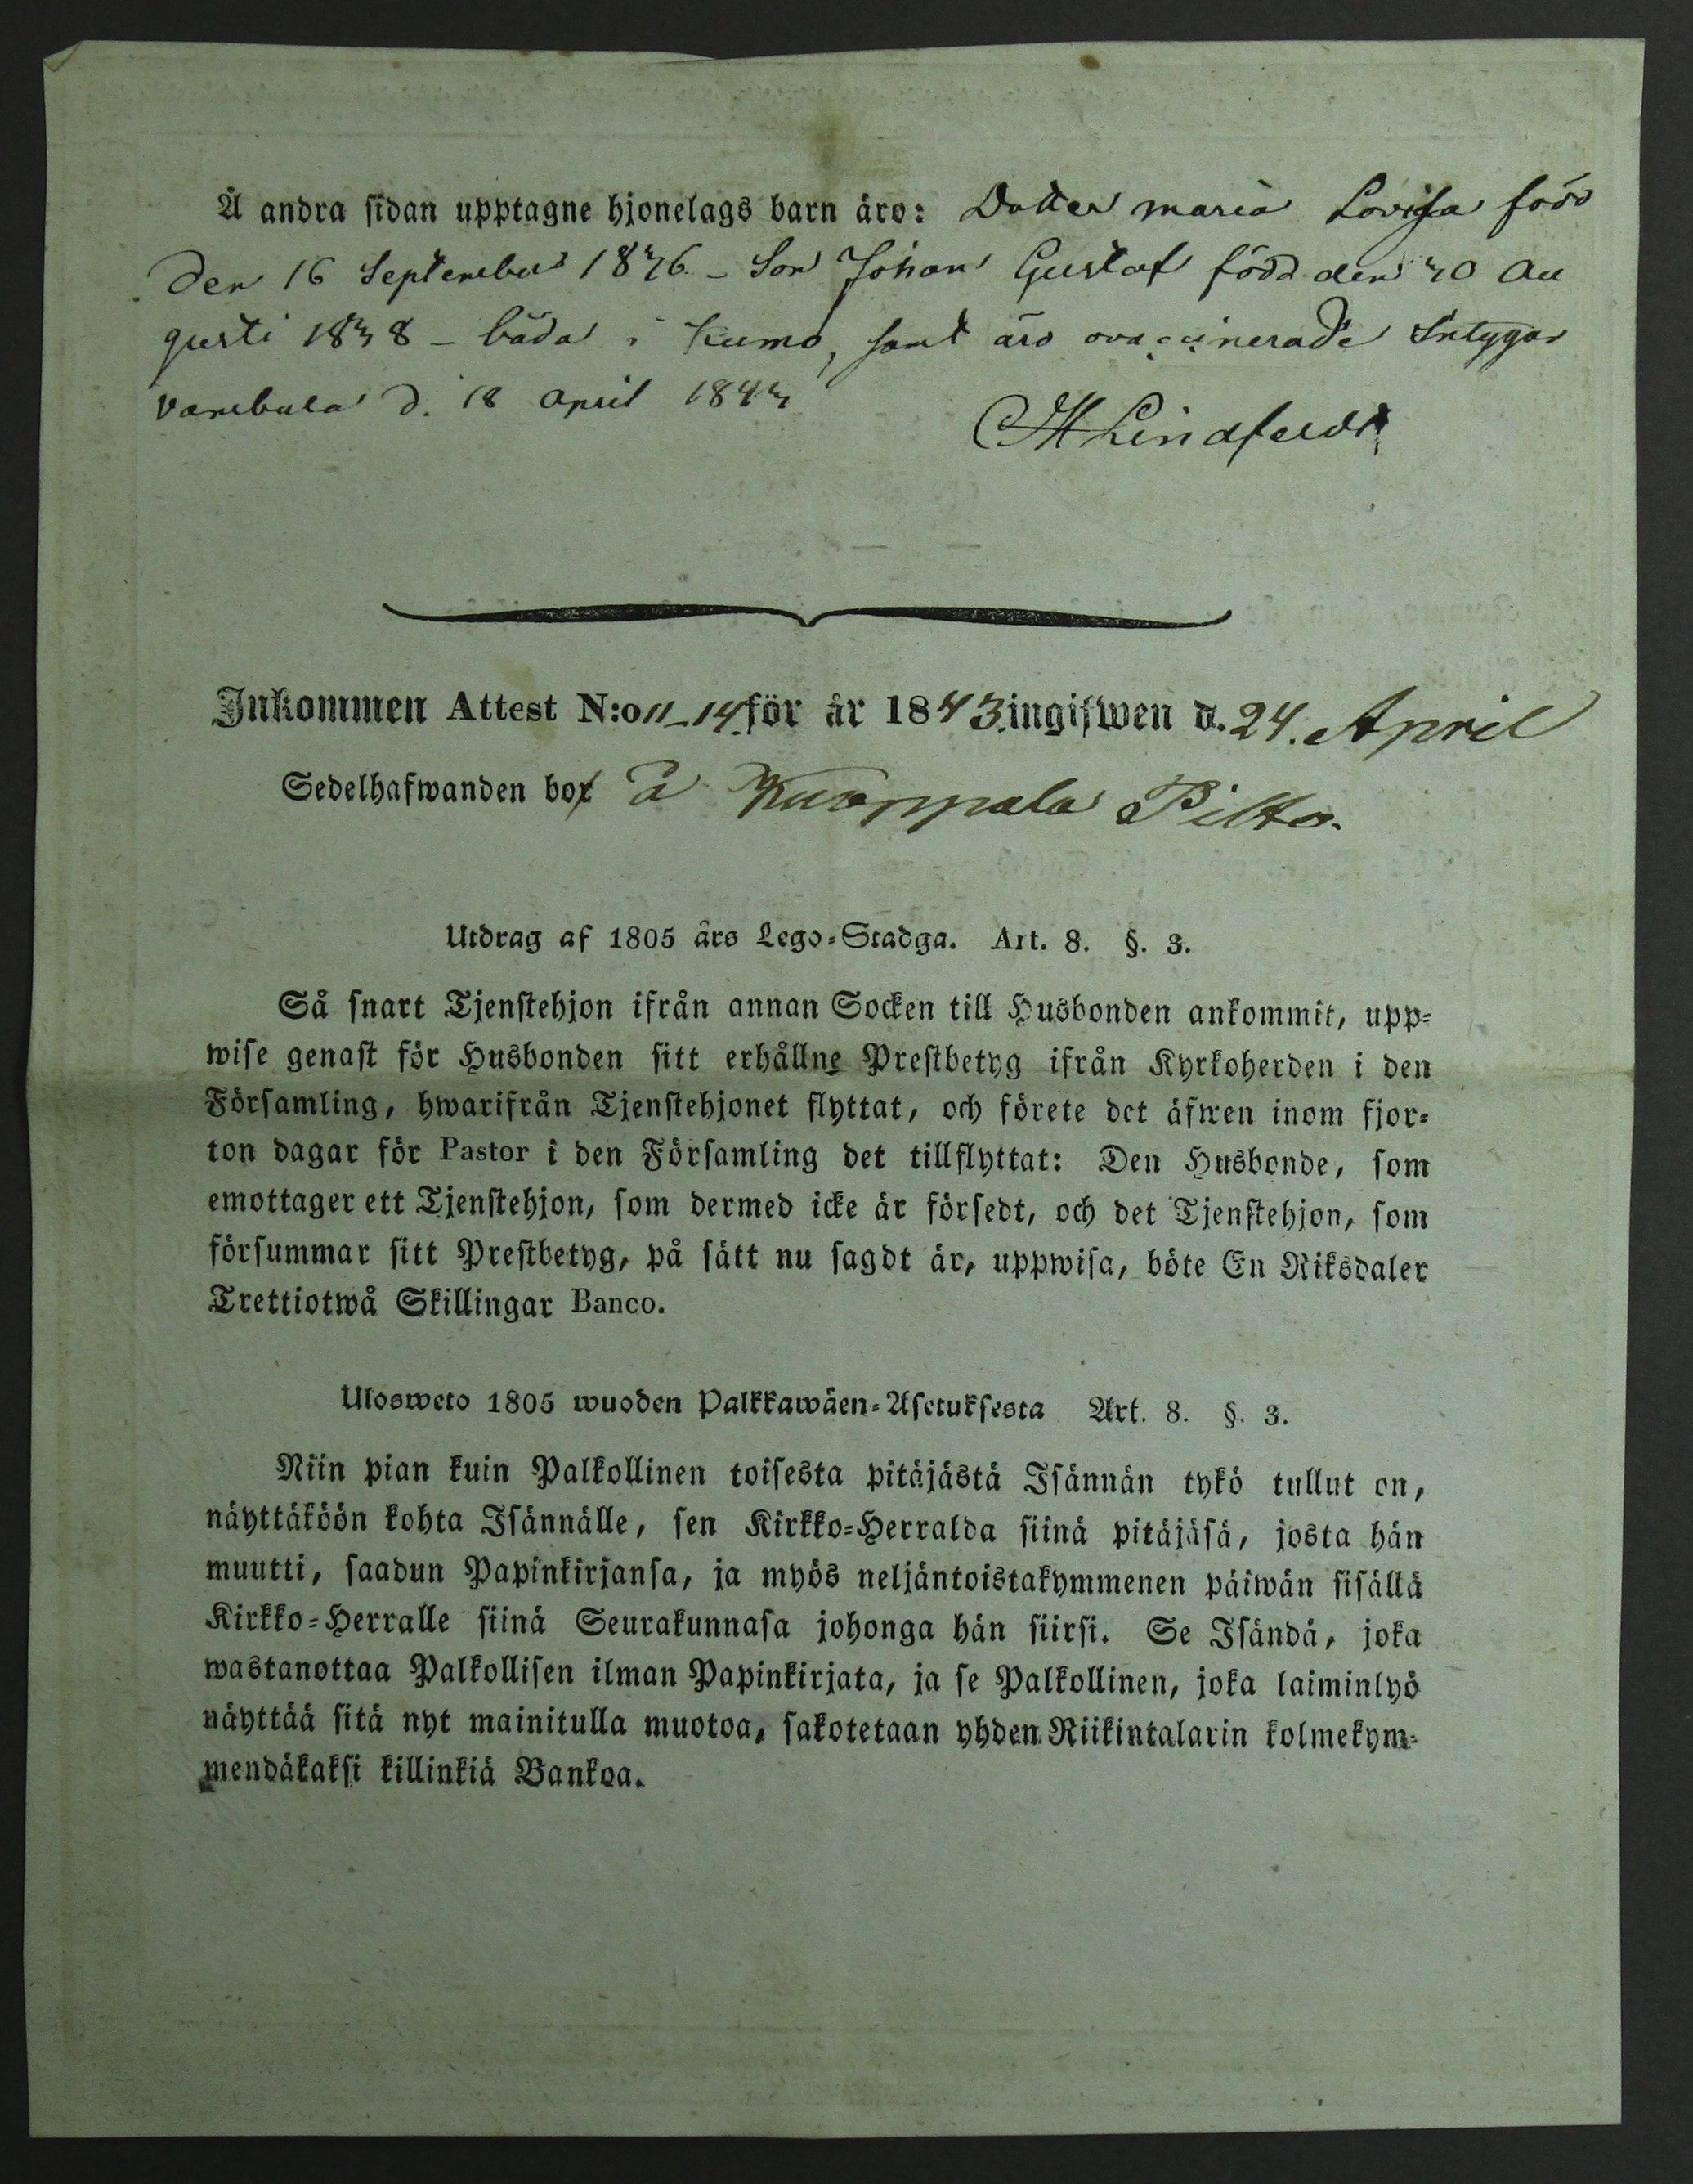 Å andra sidan upptagne hjonelags barn äro: Dotter Maria Lovisa född
den 16 September 1836 - Son Johan Gustaf född den 30 Au
gusti 1838 - båda i Kumo, samt äro ovaccinerade Intygar
Vambula d. 18 April 1843
Lindfeldt
Inkommen Attest N:o 11-14 för år 1843. ingifwen d. 24. April
Sedelhafwanden bor å Kuoppala Pitto.
Utdrag af 1805 års Lego-Stadga. Art. 8. §. 3.
Så snart Tjenstehjon ifrån annan Socken till Husbonden ankommit, upp-
wise genast för Husbonden sitt erhållne Prestbetyg ifrån Kyrkoherden i den
Församling, hwarifrån Tjenstehjonet flyttat, och förete det äfwen inom fjor-
ton dagar för Pastor i den Församling det tillflyttat: Den Husbonde, som
emottager ett Tjenstehjon, som dermed icke är försedt, och det Tjenstehjon, som
försummar sitt Prestbetyg, på sätt nu sagdt är, uppwisa, böte En Riksdaler
Trettiotwå Skillingar Banco.
Ulosweto 1805 wuoden Palkkawäen-Asetuksesta Art. 8. §. 3.
Niin pian kuin Palkollinen toisesta pitäjästä Isännän tykö tullut on,
näyttäköön kohta Isännälle, sen Kirkko-Herralda siinä pitäjäsä, josta hän
muutti, saadun Papinkirjansa, ja myös neljäntoistakymmenen päiwän sisällä
Kirkko-Herralle siinä Seurakunnasa johonga hän siirsi. Se Isändä, joka
wastanottaa Palkollisen ilman Papinkirjata, ja se Palkollinen, joka laiminlyö
näyttää sitä nyt mainitulla muotoa, sakotetaan yhden Riikintalarin kolmekym-
mendäkaksi killinkiä Bankoa.